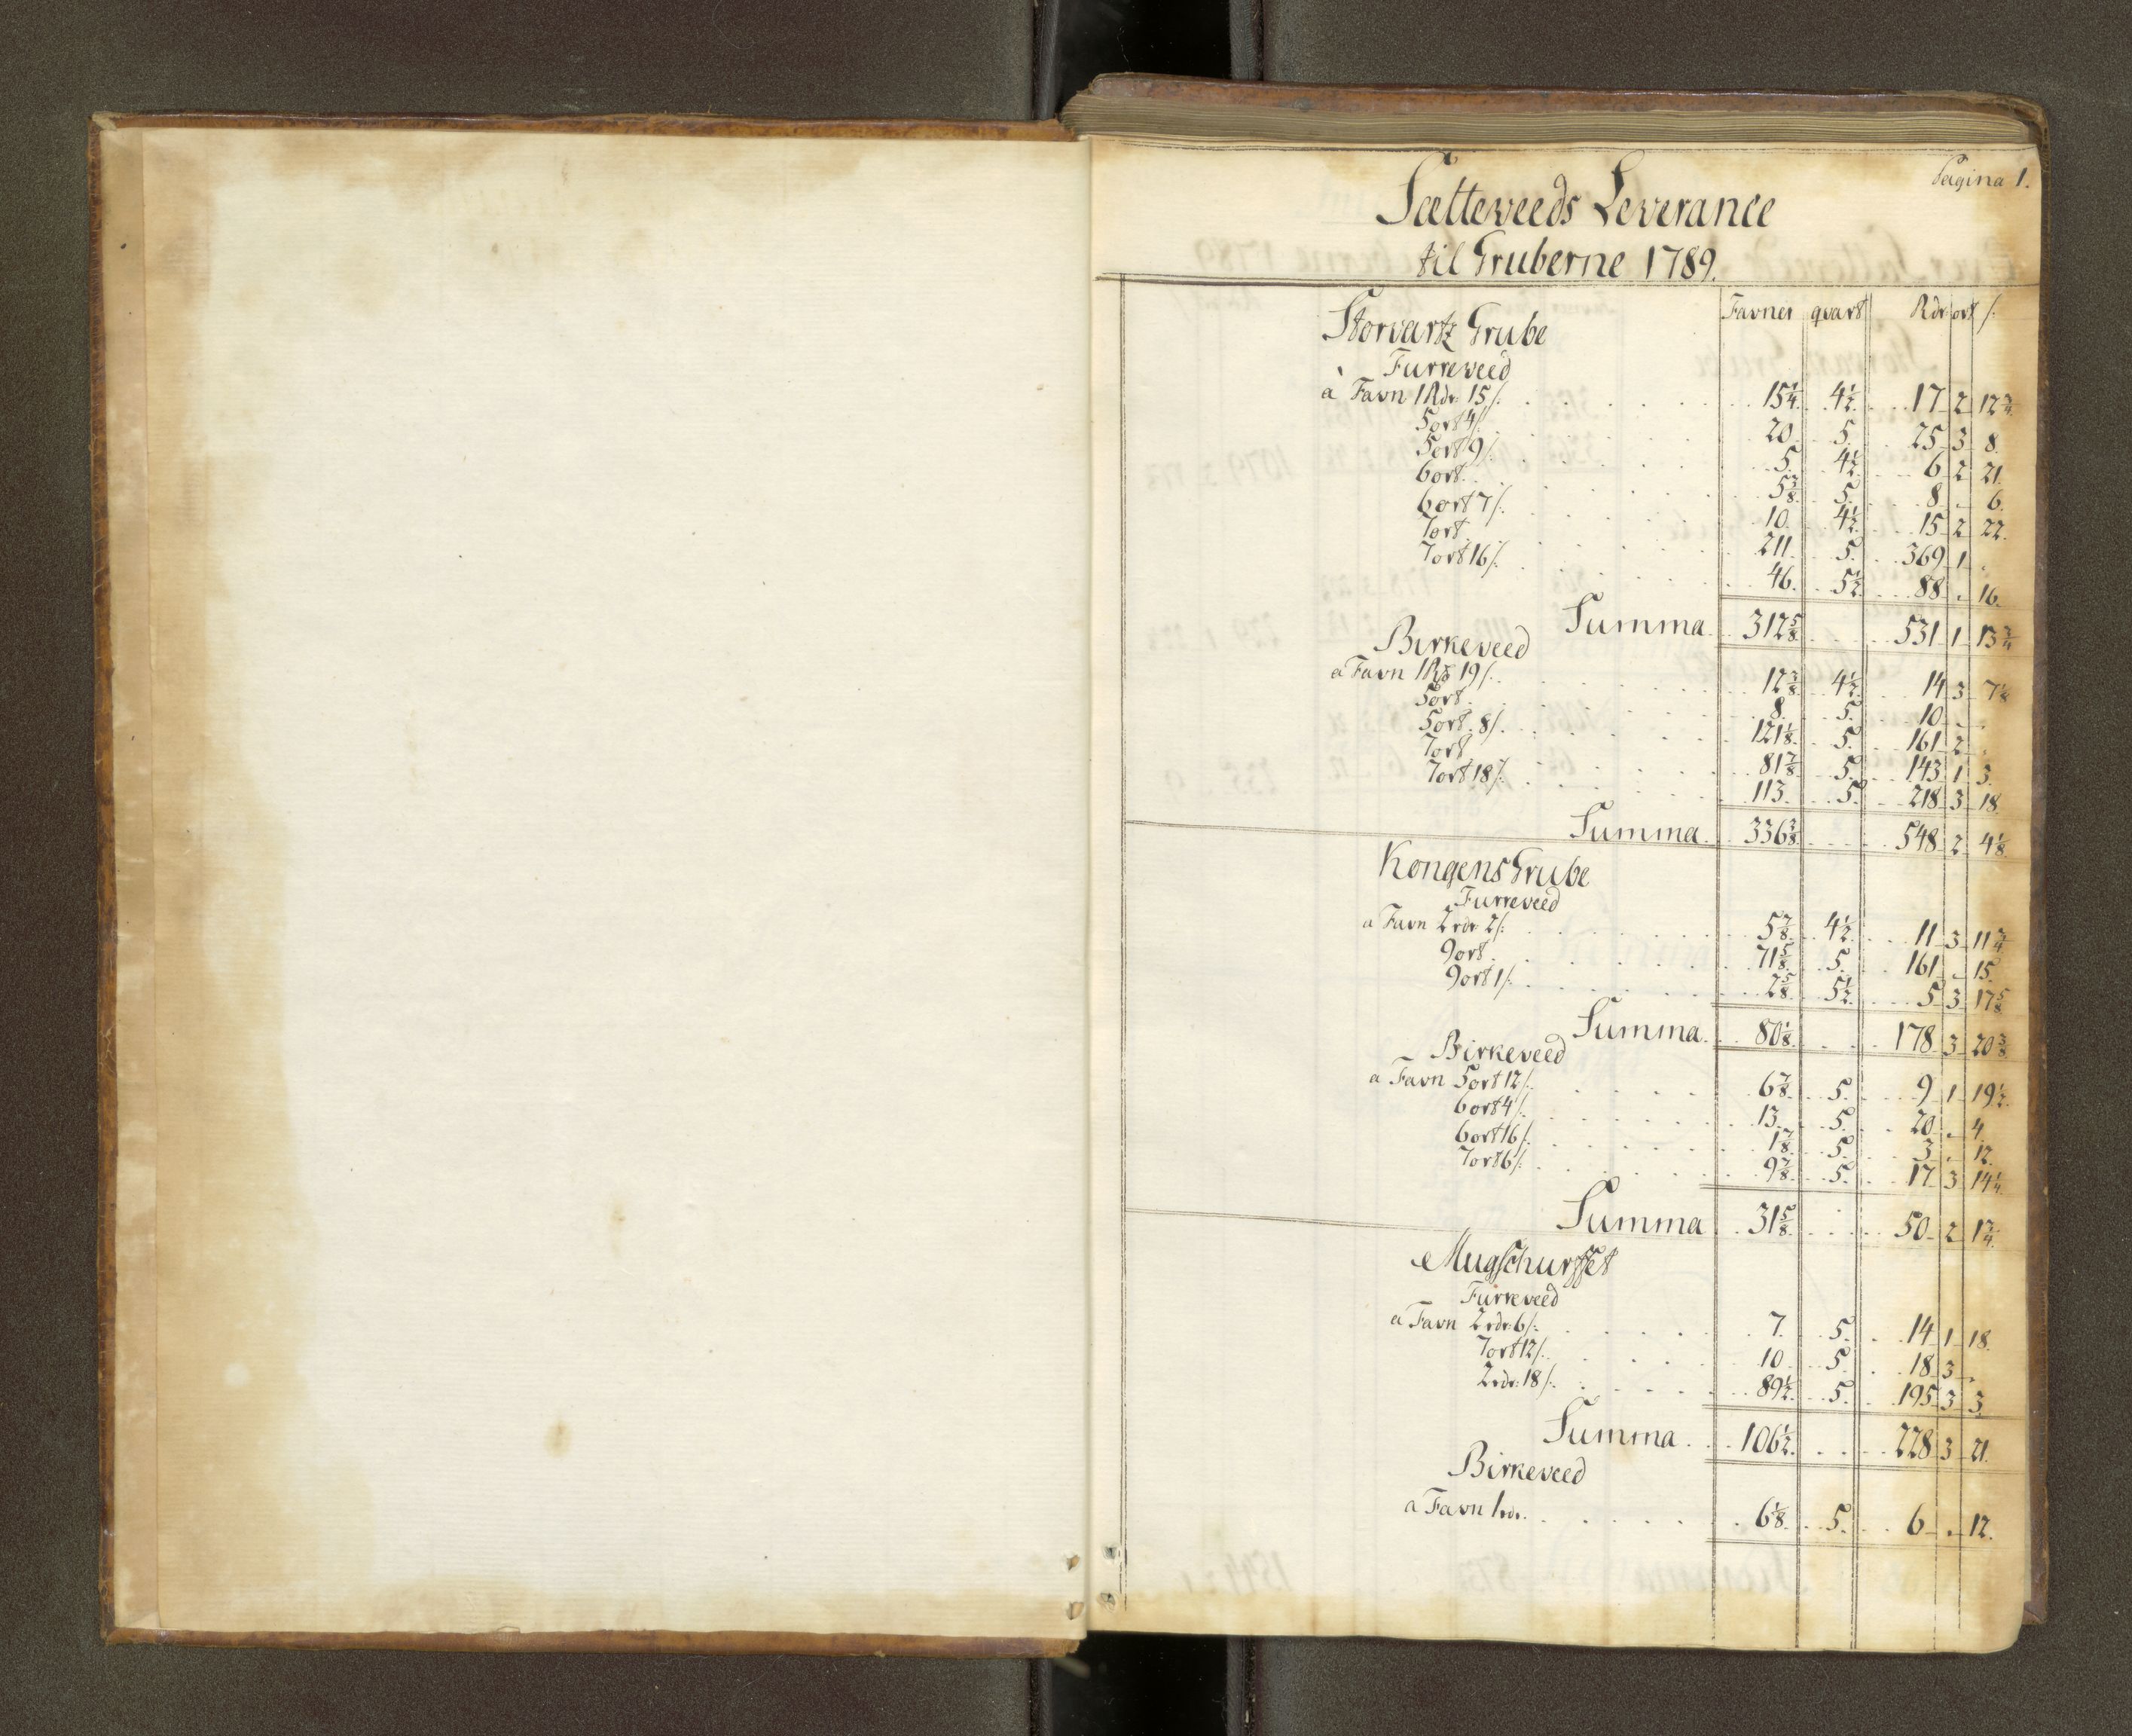 Pagina 1.
Sætteveeds Leverance
til Gruberne 1789.
Favner quart Rdr ort /:
Storvartz Grube
Furreveed
à Favn 1 Rdr: 15/: 15 1/4 4 1/2 17 2 12 3/4
5 ort 4/: 20 5 25 3 8
5 ort 9/: 5 4 1/2 6 2 21
6 ort 5 3/8 5 8 . 6
6 ort 7/: 10 4 1/2 15 2 22
7 ort 211 5 369 1 .
7 ort 16/: 46 5 1/2 88 . 16
Summa 312 5/8 531 1 13 3/4
Birkeveed
a Favn 1 Rd 19/: 12 3/8 4 1/2 14 3 7 1/8
5 ort 8 5 10 . .
5 ort 8/: 121 1/8 5 161 2 .
7 ort 81 7/8 5 143 1 3
7 ort 18/: 113 5 218 3 18
Summa 336 3/8 548 2 4 1/8
Kongens Grube
Furreveed
a Favn 2 rdr 2/: 5 7/8 4 1/2 11 3 11 3/4
9 ort 71 5/8 5 161 . 15
9 ort 1/: 2 5/8 5 1/2 5 3 17 5/8
Summa 80 1/8 178 3 20 3/8
Birkeveed
a Favn 5 ort 12/: 6 7/8 5 9 1 19 1/2
6 ort 4/: 13 5 20 . 4
6 ort 16/: 1 7/8 5 3 . 12
7 ort 6/: 9 7/8 5 17 3 14 1/4
Summa 31 5/8 50 2 1 3/4
Mugschurffet
Furreveed
a Favn 2 rdr: 6/: 7 5 14 1 18
7 ort 12/: 10 5 18 3 .
2 rdr: 18/: 89 1/2 5 195 3 3
Summa 106 1/2 228 3 21
Birkeveed
a Favn 1 rdr. 6 1/8 5 6 . 12